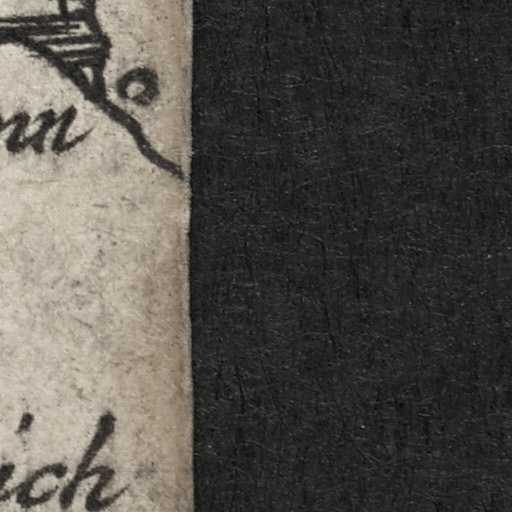 nn
ich